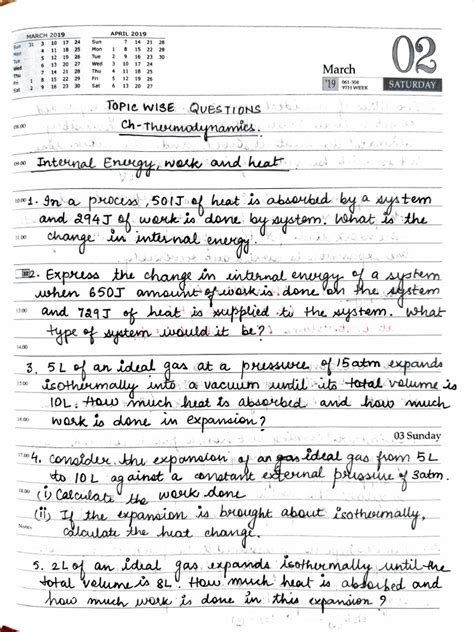 MARCH 2019
Sun 31 3 10 17 24
Mon 4 11 18 25
Tue 5 12 19 26
Wed 6 13 20 27
Thu 7 14 21 28
Fri 1 8 15 22 29
Sat 2 9 16 23 30
APRIL 2019
Sun 7 14 21 28
Mon 1 8 15 22 29
Tue 2 9 16 23 30
Wed 3 10 17 24
Thu 4 11 18 25
Fri 5 12 19 26
Sat 6 13 20 27
March 02
'19 061-304
9TH WEEK SATURDAY
TOPIC WISE QUESTIONS
08.00 Ch-Thermodynamics.
09.00 Internal Energy, work and heat
10.00 1. In a process, 501J of heat is absorbed by a system
and 294J of work is done by system. What is the
change in internal energy.
2. Express the change in internal energy of a system
when 650J amount of work is done on the system
13.00 and 729J of heat is supplied to the system. What
type of system would it be?
3. 5L of an ideal gas at a pressure of 15atm expands
isothermally into a vacuum until its total volume is
10L. How much heat is absorbed and how much
work is done in expansion?
03 Sunday
17.00 4. Consider the expansion of an ideal gas from 5L
to 10L against a constant external pressure of 3atm.
18.00 (i) Calculate the work done
(ii) If the expansion is brought about isothermally,
Notes calculate the heat change.
5. 2L of an ideal gas expands isothermally until the
total volume is 8L. How much heat is absorbed and
how much work is done in this expansion?